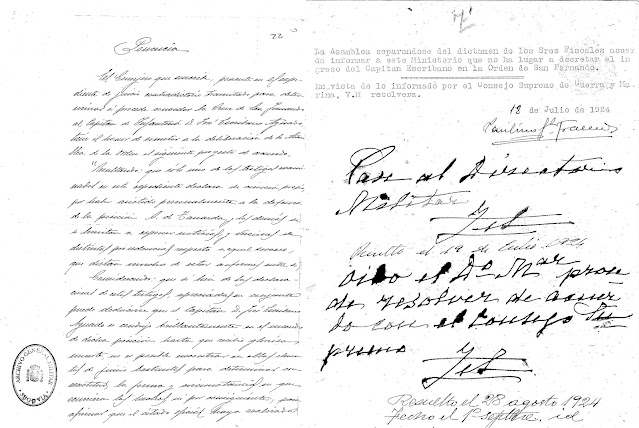 22
Ponencia
El Consejero que suscribe, presente en el expe-
diente de juicio contradictorio tramitado para deter-
minar si procede conceder la Cruz de San Fernando
al Capitan de Infanteria D. José Escribano Aguado
tiene el honor de someter a la deliberación de la Asam-
blea de la orden el siguiente proyecto de acuerdo.
Resultando que solo uno de los testigos exami-
nados en este expediente declara de ciencia propia
por haber asistido personalmente a la defensa
de la posición A. de y los demás se
limitan a exponer noticias y
distintas procedencias respecto a aquel suceso,
que distan mucho de estar conformes entre si.
Considerando que si bien de las declara-
ciones de estos testigos, apreciadas en conjunto
puede deducirse que el Capitan D. José Escribano
Aguado se condujo brillantemente en el mando
de dicha posición hasta que halló gloriosa
muerte, no es posible encontrar en ellas elemen-
tos de juicio bastantes para determinar con
exactitud la forma y circunstancias en que
ocurrieron los hechos ni por consiguiente, para
afirmar que el citado oficial haya realizado
ARCHIVO GENERAL MILITAR
SEGOVIA
La Asamblea separandose del dictamen de los Sres Fiscales acuer
da informar a este Ministerio que no ha lugar a decretar el in
greso del Capitan Escribano en la Orden de San Fernando.
En vista de lo informado por el Consejo Supremo de Guerra y Ma
rina, V.H resolvera.
18 de Julio de 1924
Pase al Directorio
Militar
Resulto el 19 de Julio 1924
Oido el Dº Mar proce
de resolver de acuer
do con el Consejo Su
premo
Resuelto el 28 agosto 1924
Fecho el 1º septbre. id